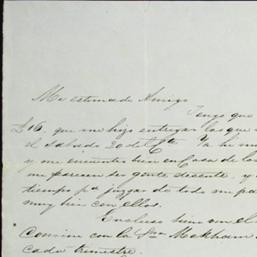 Mi estimado Amigo
Tengo que
£16, que me hizo entregar los que
el Sabado 20 del
y me encuentro bien en Casa de los
me parecen ser gente decente, y
tiempo pa juzgar de todo me pa
muy bien con ellos.
bien en el
Convine con la Sra Makham
cada trimestre.